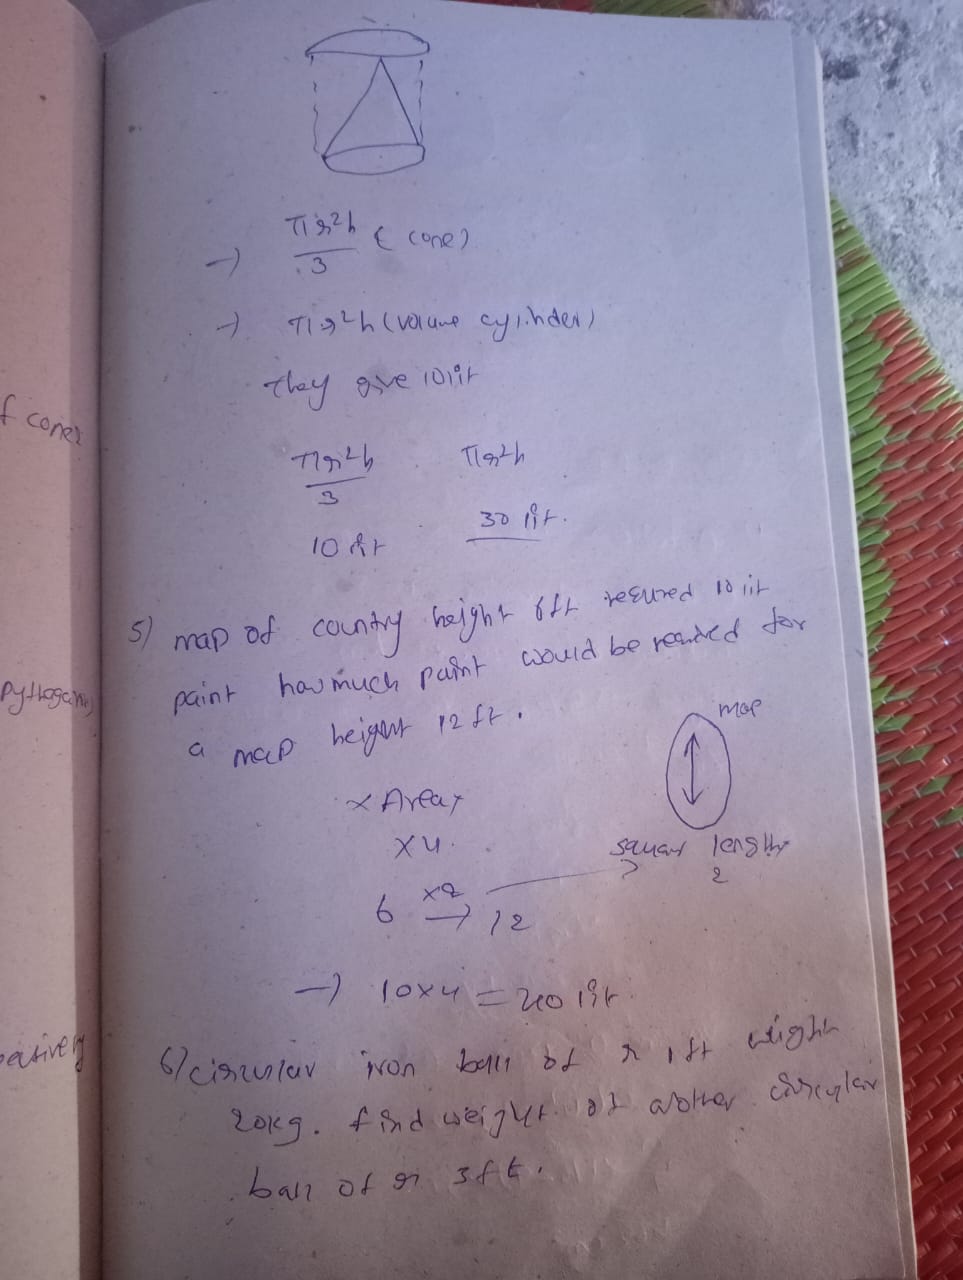 → πr²h/3 (cone)
→ πr²h (volume cylinder)
they give 10 lit
πr²h/3 πr²h
10 lit 30 lit.
5) map of country height 6ft required 10 lit
paint how much paint would be needed for
a map height 12 ft.
map
x Area x
x4.
square length
2
6 x2 → 12
→ 10x4 = 40 lit
6) circular iron ball of r 1 ft weight
20kg. find weight of another circular
ball of r 3ft.
f cones